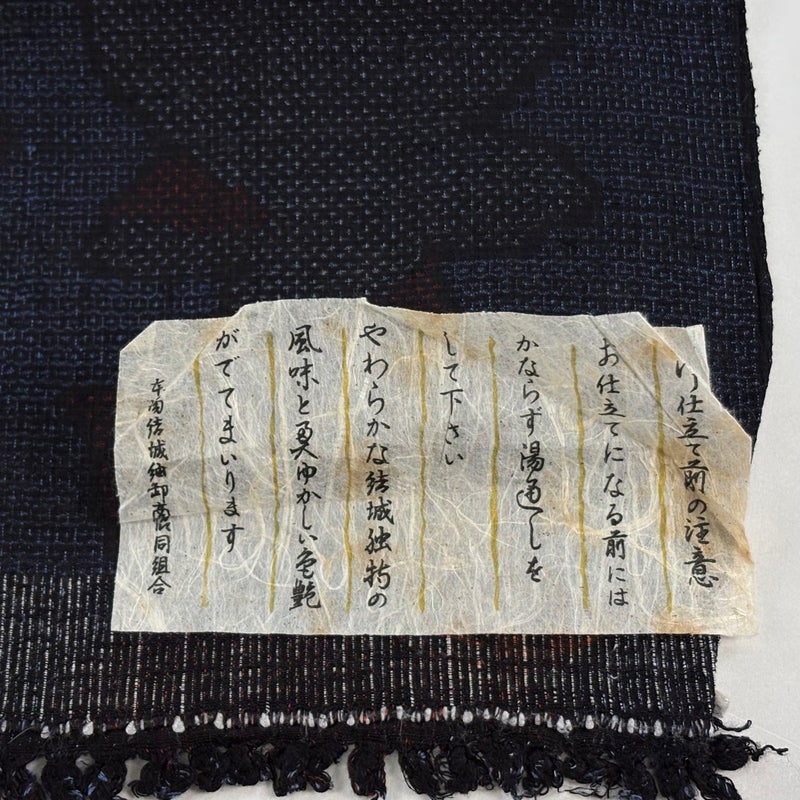 仕立て前の注意
お仕立てになる前には
かならず湯通しを
して下さい
やわらかな結城独特の
風味と奥ゆかしい色艶
がでてまいります
本場結城紬卸商同組合